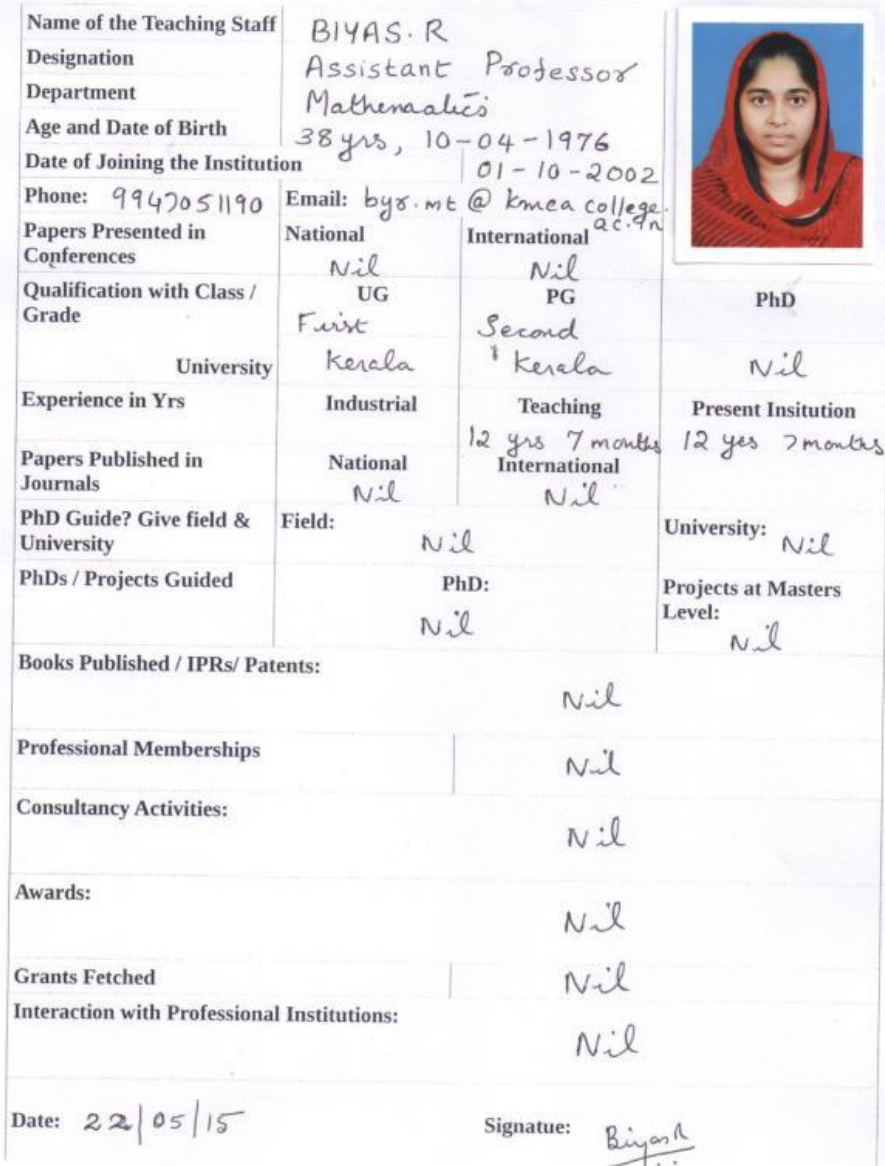 Name of the Teaching Staff BIYAS. R
Designation Assistant Professor
Department Mathematics
Age and Date of Birth 38 yrs, 10-04-1976
Date of Joining the Institution 01-10-2002
Phone: 9947051190 Email: byr.mt @ kmea college.
ac.in
Papers Presented in National International
Conferences
Nil Nil
Qualification with Class / UG PG PhD
Grade
First Second
University Kerala Kerala Nil
Experience in Yrs Industrial Teaching Present Insitution
12 yrs 7 months 12 yes 7 months
Papers Published in National International
Journals Nil Nil
PhD Guide? Give field & Field: University:
University Nil Nil
PhDs / Projects Guided PhD: Projects at Masters
Level:
Nil Nil
Books Published / IPRs/ Patents:
Nil
Professional Memberships Nil
Consultancy Activities:
Nil
Awards:
Nil
Grants Fetched Nil
Interaction with Professional Institutions:
Nil
Date: 22/05/15 Signatue: BiyasR